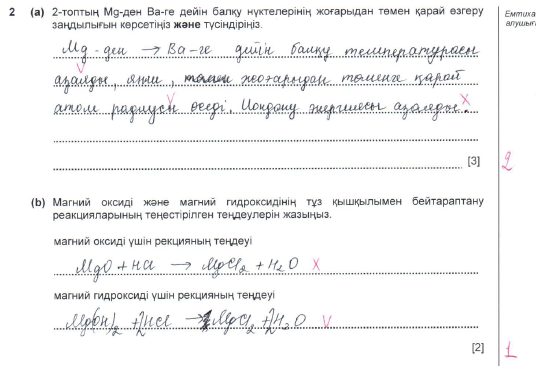 2 (a) 2-топтың Mg-ден Ba-ге дейін балқу нүктелерінің жоғарыдан төмен қарай өзгеру
Емтиха
заңдылығын көрсетіңіз және түсіндіріңіз.
алушығ
Mg - ден → Ba - ге дейін балқу температурасы
азаяды, яғни, жоғарыдан төменге қарай
атом радиусы өседі. Иондану энергиясы азаяды.
[3]
2
(b) Магний оксиді және магний гидроксидінің тұз қышқылымен бейтараптану
реакцияларының теңестірілген теңдеулерін жазыңыз.
магний оксиді үшін рекцияның теңдеуі
MgO + HCl → MgCl2 + H2O
магний гидроксиді үшін рекцияның теңдеуі
Mg(OH)2 + 2HCl → MgCl2 + 2H2O
[2]
1